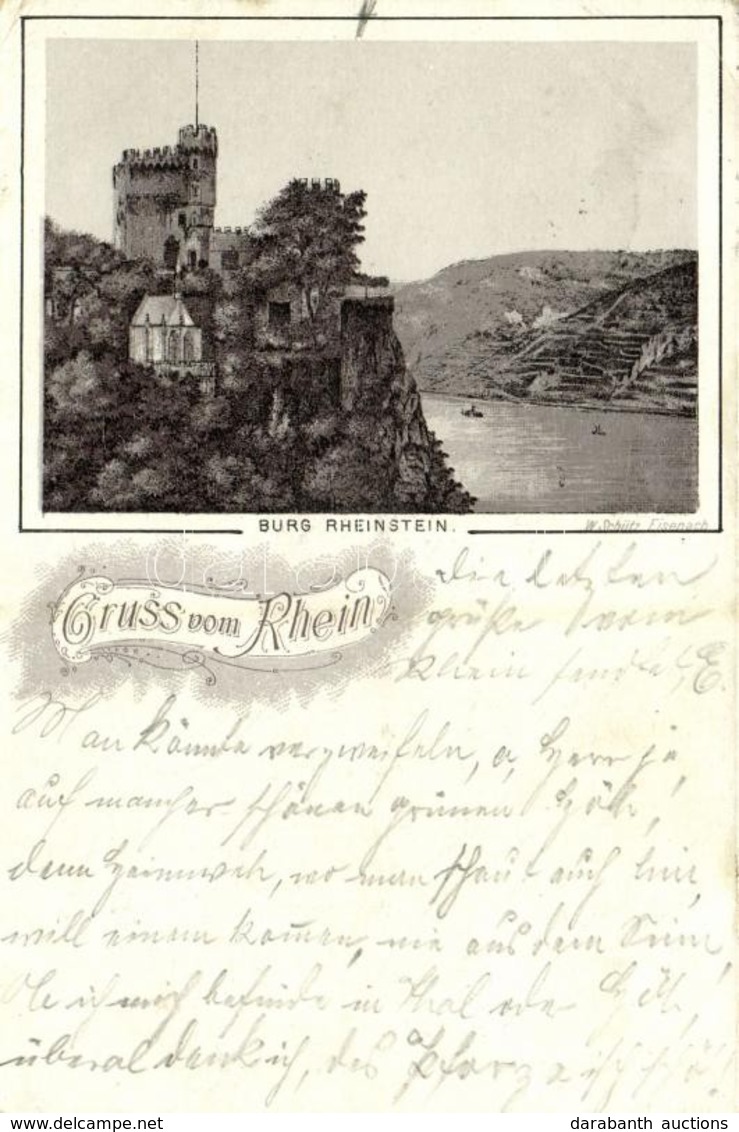 BURG RHEINSTEIN.
W. Schütz, Eisenach
Gruss vom Rhein
die letzten
grüße vom
Rhein sendet, E.
Man könnte verzweifeln, o, Herr je
auf mancher schönen grünen Höh,
denn Heimweh, wo man schaut auch hin,
will einem komen, nie aus dem Sinn,
Ob ich mich befinde in Thal oder Höh,
überal denk ich, des
darabanth auctions